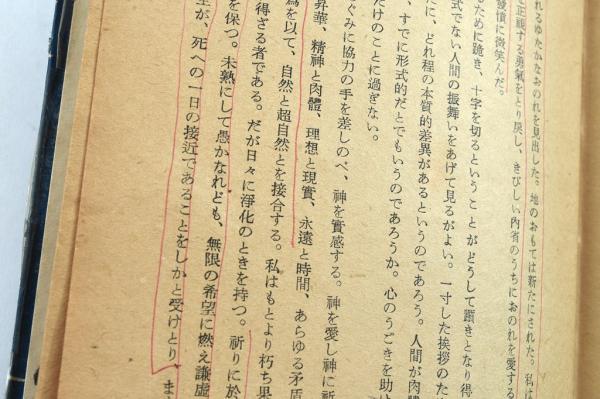 れるゆたかなおのれを見出した。地のおもては新たにされた。私は
を正視する勇氣をとり戻し、きびしい內省のうちにおのれを愛する
發憤に微笑んだ。
るために跪き、十字を切るということがどうして躓きとなり得
式でない人間の振舞いをあげて見るがよい。一寸した挨拶のた
に、どれ程の本質的差異があるというのであろう。人間が肉體
、すでに形式的だとでもいうのであろうか。心のうごきを助け
だけのことに過ぎない。
ぐみに協力の手を差しのべ、神を實感する。神を愛し神に祈
昇華、精神と肉體、理想と現實、永遠と時間、あらゆる矛盾
為を以て、自然と超自然とを接合する。私はもとより朽ち果
得ざる者である。だが日々に淨化のときを持つ。祈りに於
を保つ。未熟にして愚かなれども、無限の希望に燃え謙虛
生が、死への一日の接近であることをしかと受けとり、ま